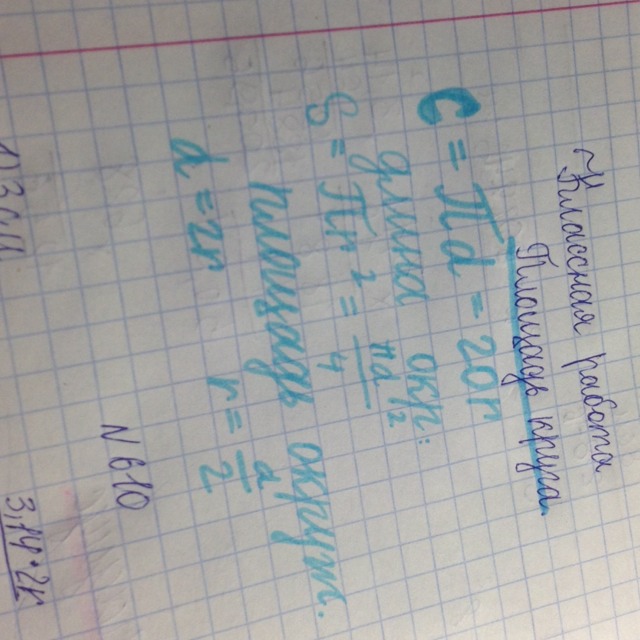 Классная работа
Площадь круга
C = πd = 2πr
длина окр.:
S = πr² = πd²/4
площадь окружн.
d = 2r r = d/2
N 610
3,14·2r